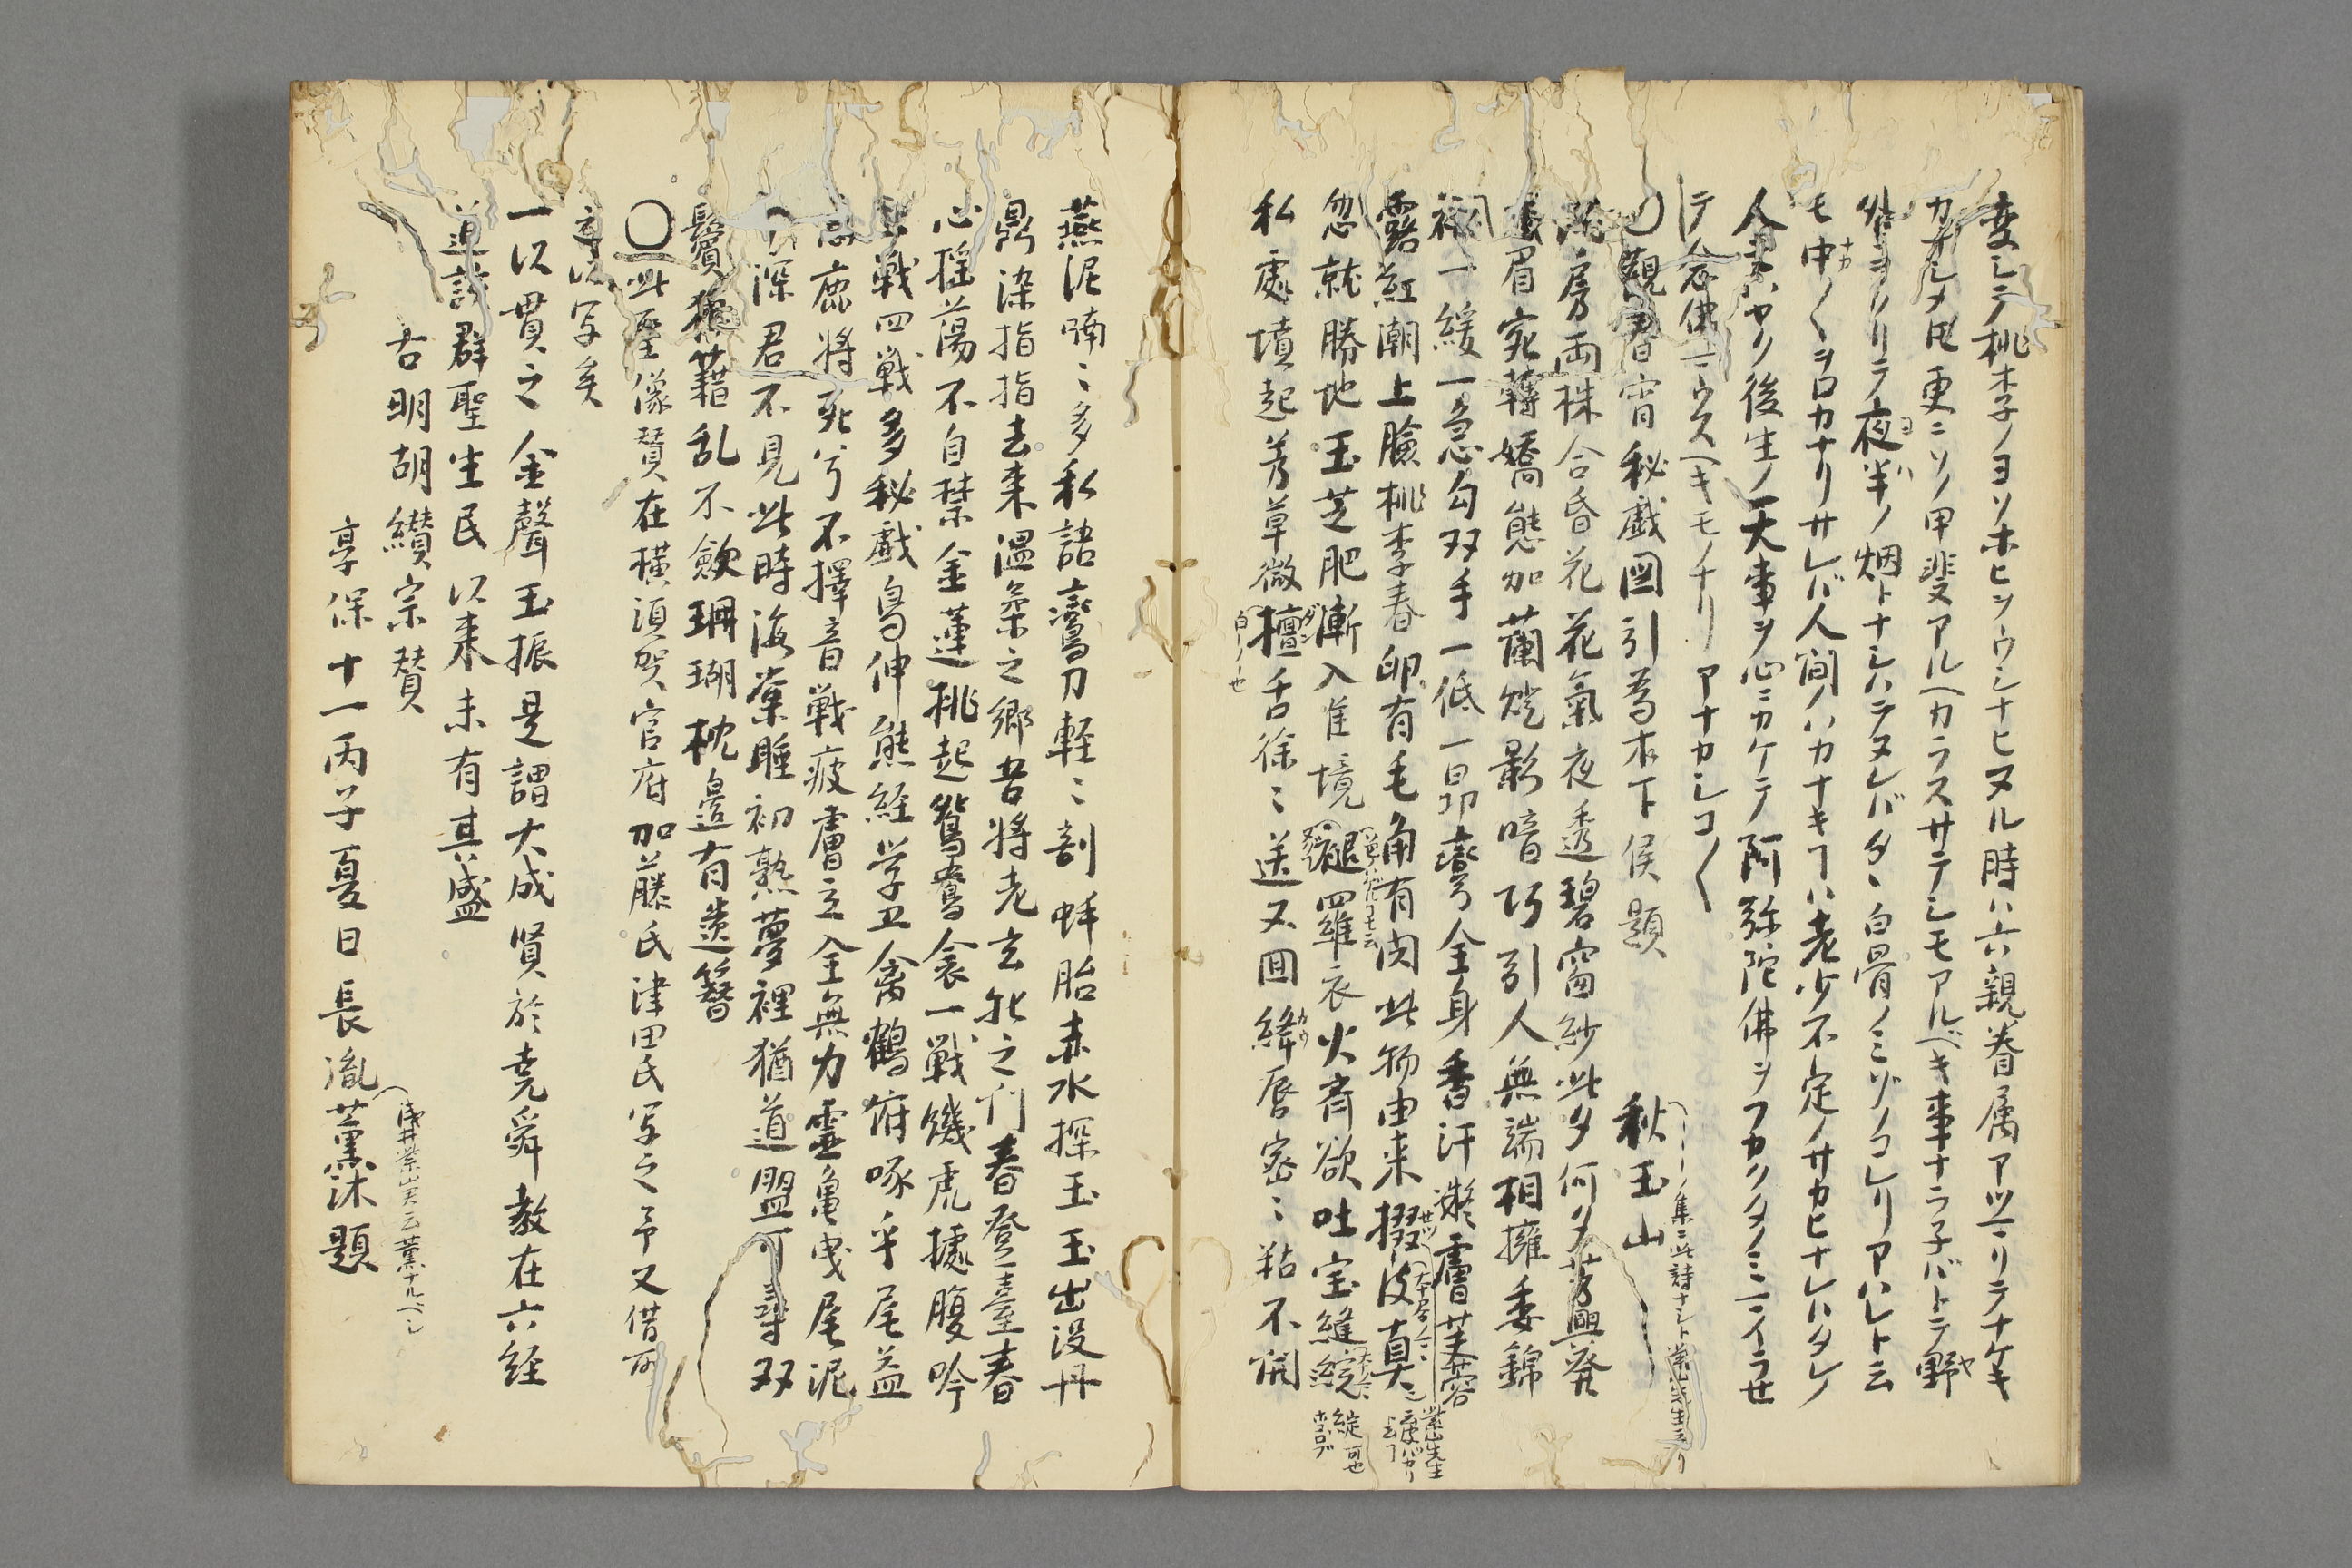 変シテ桃李ノヨソホヒヲウシナヒヌル時ハ六親眷属アツマリテナケキ
カナシメ𪜈更ニソノ甲斐アルヘカラスサテシモアルベキ事ナラ子バトテ野
外ヲクリテ夜半ノ烟トナシハテヌレバタヽ白骨ノミゾノコレリアハレト云
モ中〱ヲロカナリサレバ人間ノハカナキヿハ老少不定ノサカヒナレハタレノ
人モハヤク後生ノ一大事ヲ心ニカケテ阿弥陀佛ヲフカクタノミマイラセ
テ念佛マウスヘキモノナリアナカシコ〱
集ニ此詩ナシト紫山先生云リ
○観春宵秘戯図引為木下侯題 秋玉山
洞房両株合昏花花氣夜透碧窗紗此夕何夕芳興発
蛾眉宛轉嬌態加蘭燈影暗巧引人無端相擁委錦
裀一緩一急勾双手一低一昂彎全身香汗漐膚芙蓉
露紅潮上臉桃李春卵有毛角有肉此物由来掇皮真
紫山先生
忽就勝地玉芝肥漸入佳境褪羅衣火齊欲吐宝縫綻
綻 可也
ホコロブ
私處墳起芳草微檀舌徐〻送又囬絳唇密〻粘不開
燕泥喃〻多私語鸞刀軽〻剖蚌胎赤水探玉玉出没丹
鼎染指指去来温柔之郷吾将老玄牝之門春登臺春
心揺蕩不自禁金蓮挑起鴛鴦衾一戦饑虎據腹吟
三戦四戦多秘戯鳥伸熊経学五禽鶴俯啄乎尾益
高鹿将死兮不擇音戦疲膚立全無力霊亀曳尾泥
深君不見此時海棠睡初熟夢裡猶道盟可尋双
鬢狼藉乱不斂珊瑚枕邊有遺簪
○此聖像賛在横須賀官府加藤氏津田氏写之予又借
写矣
一以貫之金聲玉振是謂大成賢於堯舜教在六経
道詑群聖生民以来未有其盛
右明胡纉宗賛
享保十一丙午夏日長胤薫沐題
浅井紫山夭云薫ナルベシ